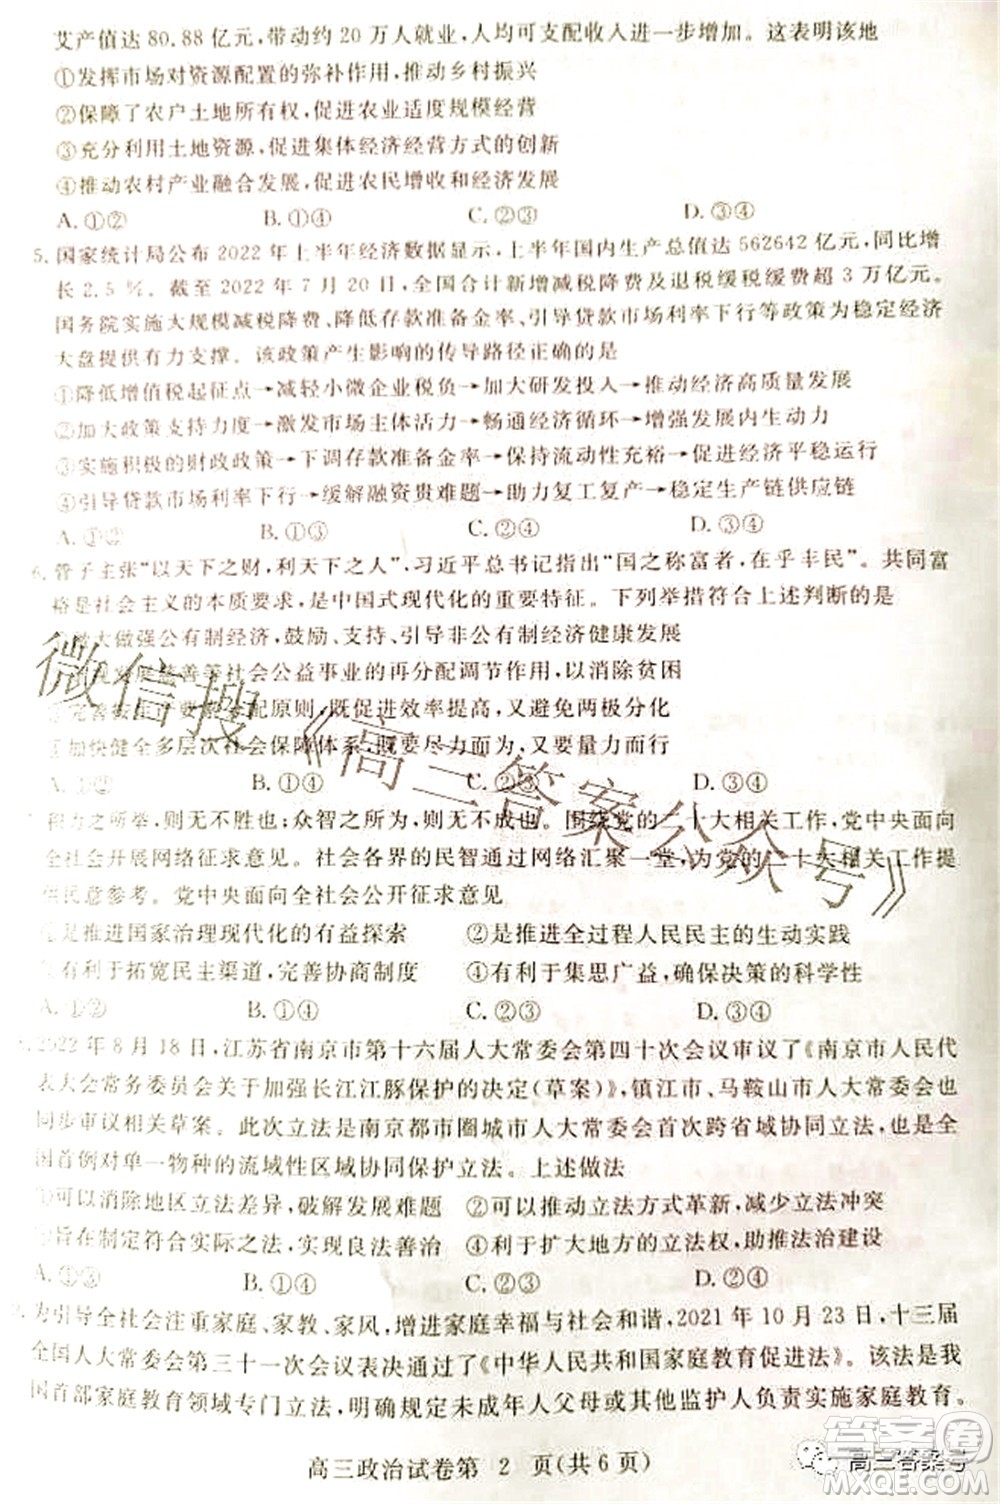 艾产值达 80.88 亿元,带动约 20 万人就业,人均可支配收入进一步增加。这表明该地
①发挥市场对资源配置的弥补作用,推动乡村振兴
②保障了农户土地所有权,促进农业适度规模经营
③充分利用土地资源,促进集体经济经营方式的创新
④推动农村产业融合发展,促进农民增收和经济发展
A. ①② B. ①④ C. ②③ D. ③④
5. 国家统计局公布 2022 年上半年经济数据显示,上半年国内生产总值达 562642 亿元,同比增
长 2.5 %。截至 2022 年 7 月 20 日,全国合计新增减税降费及退税缓税缓费超 3 万亿元。
国务院实施大规模减税降费、降低存款准备金率、引导贷款市场利率下行等政策为稳定经济
大盘提供有力支撑。该政策产生影响的传导路径正确的是
①降低增值税起征点→减轻小微企业税负→加大研发投入→推动经济高质量发展
②加大政策支持力度→激发市场主体活力→畅通经济循环→增强发展内生动力
③实施积极的财政政策→下调存款准备金率→保持流动性充裕→促进经济平稳运行
④引导贷款市场利率下行→缓解融资贵难题→助力复工复产→稳定生产链供应链
A. ①② B. ①③ C. ②④ D. ③④
6. 管子主张“以天下之财,利天下之人”,习近平总书记指出“国之称富者,在乎丰民”。共同富
裕是社会主义的本质要求,是中国式现代化的重要特征。下列举措符合上述判断的是
做大做强公有制经济,鼓励、支持、引导非公有制经济健康发展
发展慈善等社会公益事业的再分配调节作用,以消除贫困
配原则,既促进效率提高,又避免两极分化
④加快健全多层次社会保障体系,既尽力而为又量力而行
A. ①② B. ①④ C. ②③ D. ③④
积力之所举,则无不胜也;众智之所为,则无不成也。围绕党的二十大相关工作,党中央面向
全社会开展网络征求意见。社会各界的民智通过网络汇聚一堂,为党的二十大相关工作提
供民意参考。党中央面向全社会公开征求意见
①是推进国家治理现代化的有益探索 ②是全过程人民民主的生动实践
有利于拓宽民主渠道,完善协商制度 ④有利于集思广益,确保决策的科学性
A. ①② B. ①④ C. ②③ D. ③④
2022 年 8 月 18 日,江苏省南京市第十六届人大常委会第四十次会议审议了《南京市人民代
表大会常务委员会关于加强长江江豚保护的决定(草案)》,镇江市、马鞍山市人大常委会也
同步审议相关草案。此次立法是南京都市圈城市人大常委会首次跨省域协同立法,也是全
国首例对单一物种的流域性区域协同保护立法。上述做法
①可以消除地区立法差异,破解发展难题 ②可以推动立法方式革新,减少立法冲突
旨在制定符合实际之法,实现良法善治 ④利于扩大地方的立法权,助推法治建设
A. ①② B. ①④ C. ②③ D. ③④
9. 为引导全社会注重家庭、家教、家风,增进家庭幸福与社会和谐,2021 年 10 月 23 日,十三届
全国人大常委会第三十一次会议表决通过了《中华人民共和国家庭教育促进法》。该法是我
国首部家庭教育领域专门立法,明确规定未成年人父母或者其他监护人负责实施家庭教育。
高三政治试卷第 2 页(共 6 页)
微信搜《高三答案公众号》
答案圈
高三答案号